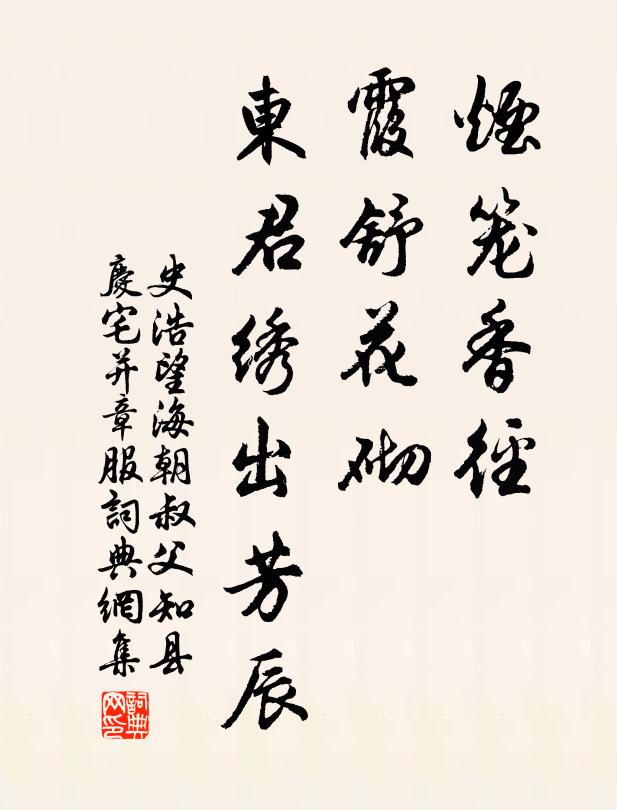 煙笼香徑
霞舒花砌
東君绣出芳辰
史浩望海朝叔父知县
慶宅并章服詞典網集
詞典网印